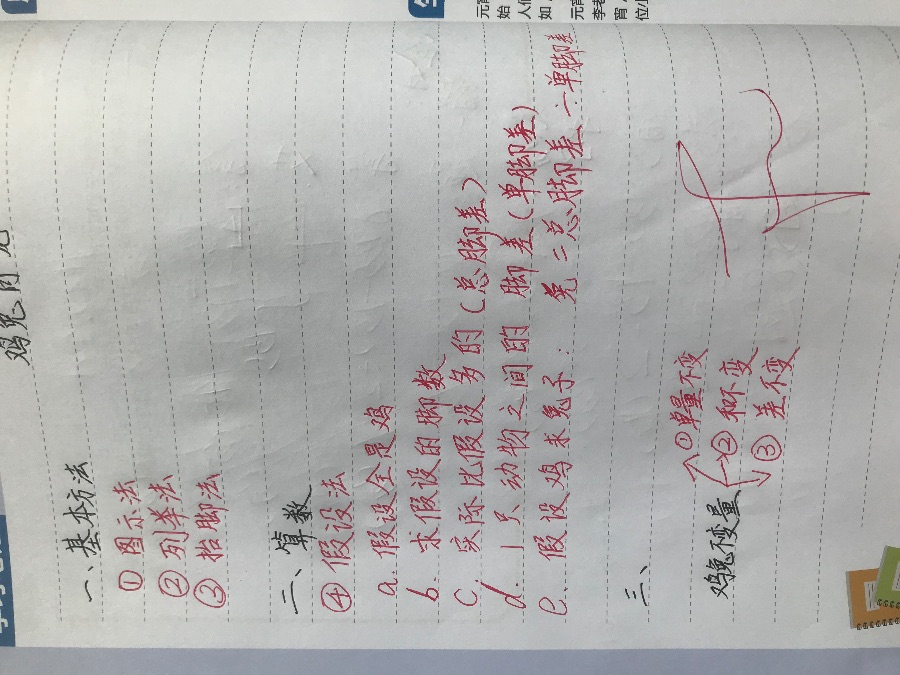 鸡兔同
一、基本方法
①图示法
②列举法
③抬脚法
二、算数
④假设法
a. 假设全是鸡
b. 求假设的脚数
C. 实际比假设多的(总脚差)
d. 1只动物之间的脚差(单脚差)
e. 假设鸡求兔子: 兔=总脚差÷单脚差
三、
鸡兔不变量
①单量不变
②和不变
③差不变